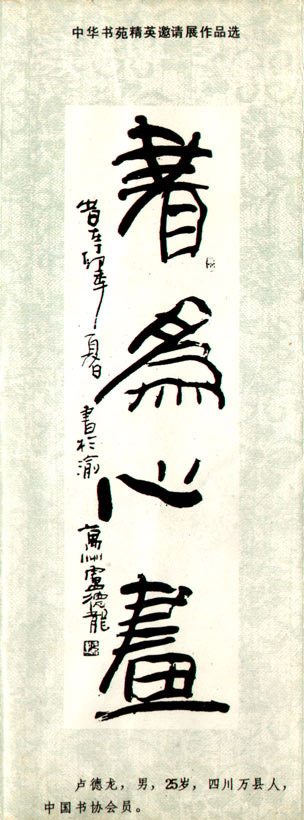 中华书苑精英邀请展作品选
書為心畫
在卯年夏日 書於渝 萬州盧德龍
卢德龙，男，25岁，四川万县人，
中国书协会员。